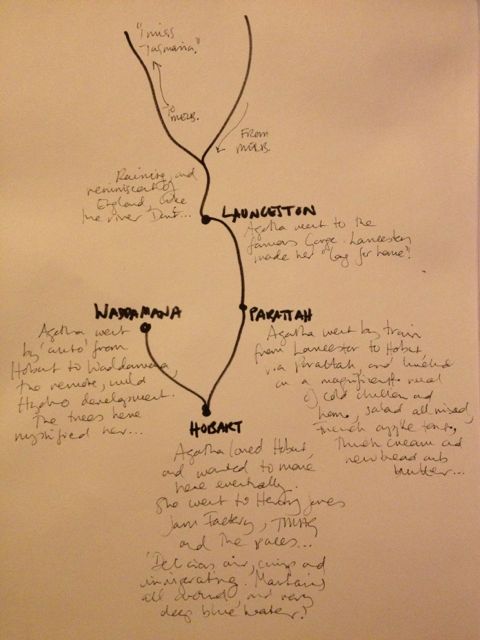 "I miss
Tasmania."
To
MELB.
FROM
MELB.
Raining, and
reminiscent of
England, like
the river Dart...
LAUNCESTON
Agatha went to the
famous Gorge. Launceston
made her "long for home".
WADDAMANA
PARATTAH
Agatha went
by 'auto' from
Hobart to Waddamana,
the remote, wild
Hydro development.
The trees here
mystified her...
Agatha went by train
from Launceston to Hobart
via Parattah, and lunched
on a magnificent meal
of cold chicken and
ham, salad all mixed,
French apple tart,
thick cream and
new bread and
butter...
HOBART
Agatha loved Hobart,
and wanted to move
here eventually.
She went to Henry Jones
Jam Factory, TMAG
and the races...
'Delicious air, crisp and
invigorating. Mountains
all around, and very
deep blue water.'